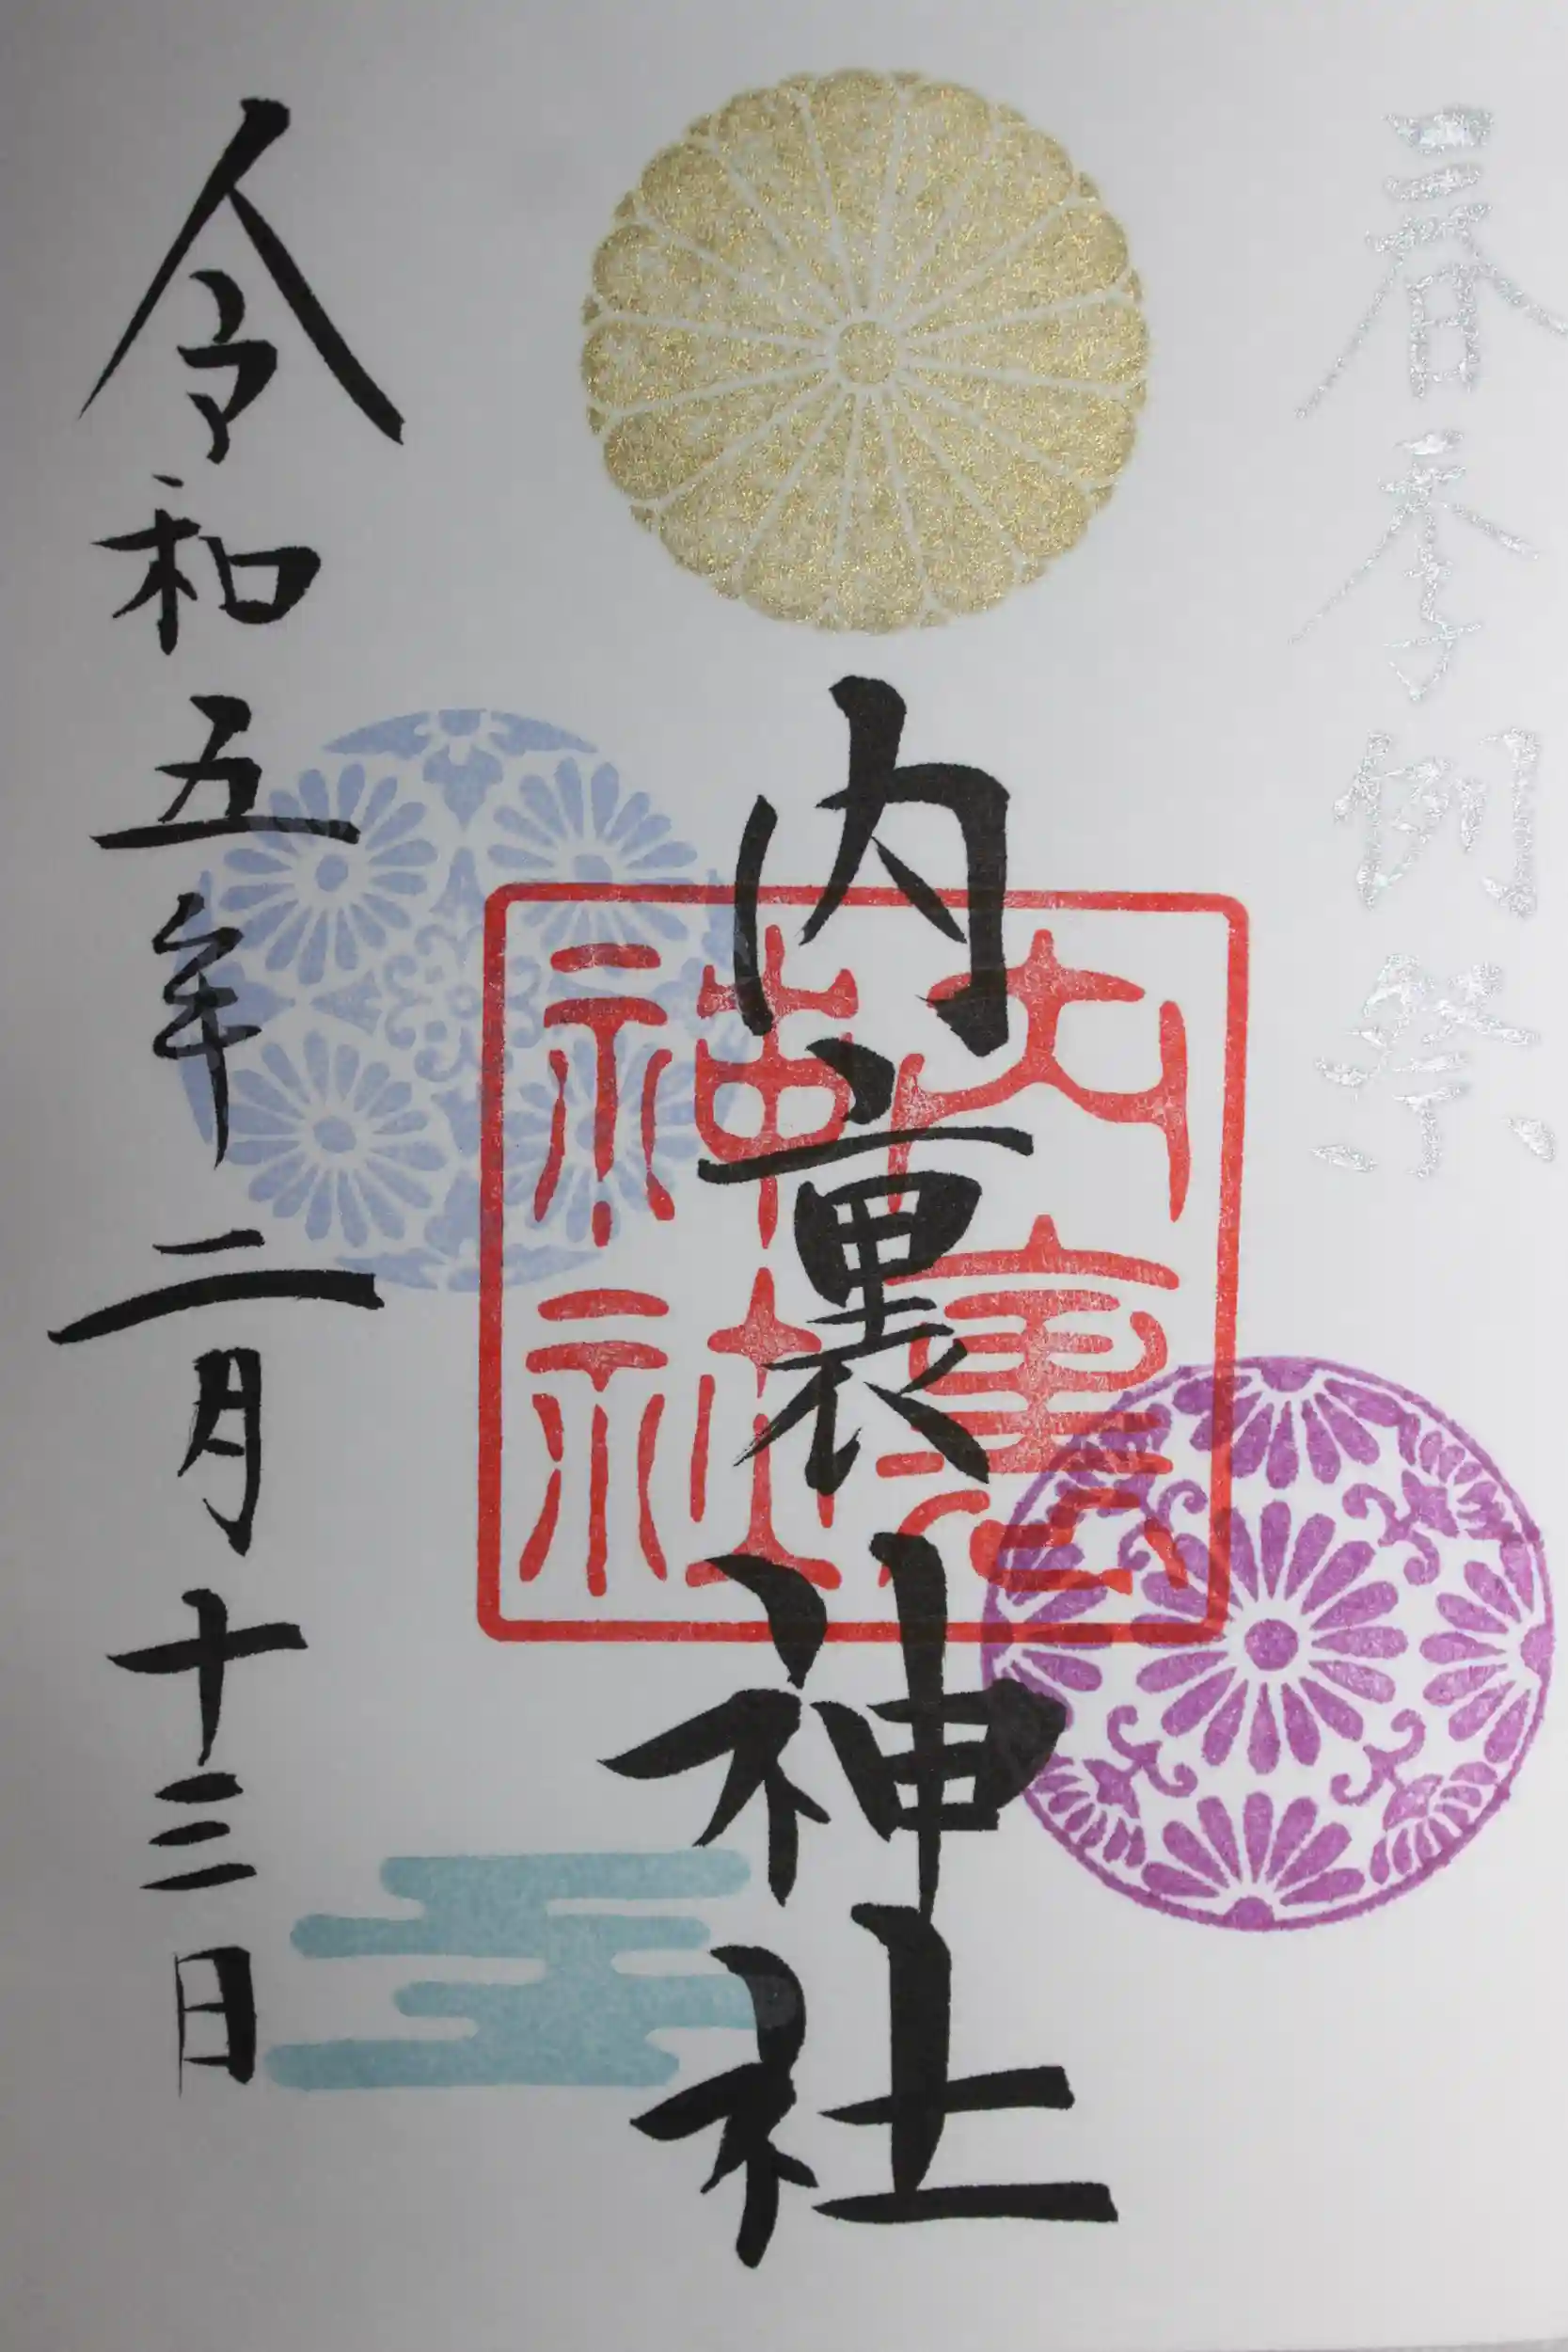 春季例祭
内裏神社
内裏神社
令和五年二月十三日